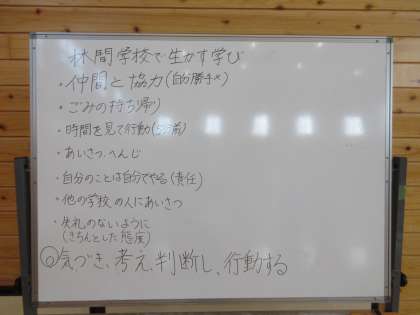 林間学校で生かす学び
・仲間と協力(自分勝手×)
・ごみの持ち帰り
・時間を見て行動(5分前)
・あいさつ、へんじ
・自分のことは自分でやる(責任)
・他の学校の人にあいさつ
・失礼のないように
(きちんとした態度)
◎気づき、考え、判断し、行動する